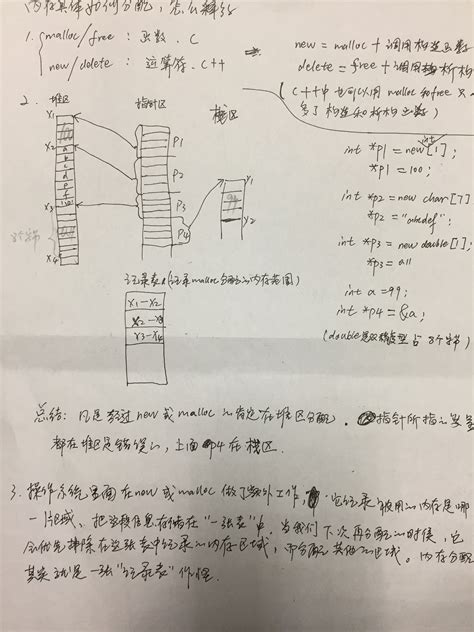 内存具体如何分配，怎么释放
1. malloc/free : 函数. C
new/delete : 运算符. C++
new = malloc + 调用构造函数
delete = free + 调用析构
(C++中也可以用malloc和free 只
多了构造和析构函数)
2. 堆区
指针区
栈区
X1
X2
X3
X4
100
a
b
c
d
e
f
8个字节
P1
P2
P3
P4
99
Y1
Y2
int
int *p1 = new[1];
*p1 = 100;
int *p2 = new char[7]
*p2 = "abcdef";
int *p3 = new double[1];
*p3 =
int a = 99;
int *p4 = &a;
(double是双精度型 占8个字节)
记录表(记录malloc分配的内存范围)
X1-X2
X2-X3
X3-X4
总结: 凡是经过new或malloc的肯定在堆区分配. 指针所指的变量
都在堆区是错误的, 上面p4在栈区.
3. 操作系统里面在new或malloc做了额外工作, 它记录被用的内存是哪
一区域, 把这种信息存储在"一张表"中. 当我们下次再分配的时候, 它
会优先排除在这张表中记录的内存区域, 而分配其他的区域。内存分配
其实就是一张"记录表"作怪.